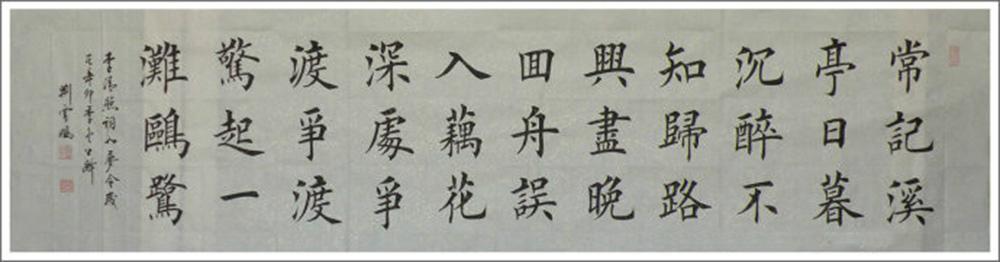 常記溪
亭日暮
沉醉不
知歸路
興盡晚
回舟誤
入藕花
深處爭
渡爭渡
驚起一
灘鷗鷺
李清照詞如夢令歲